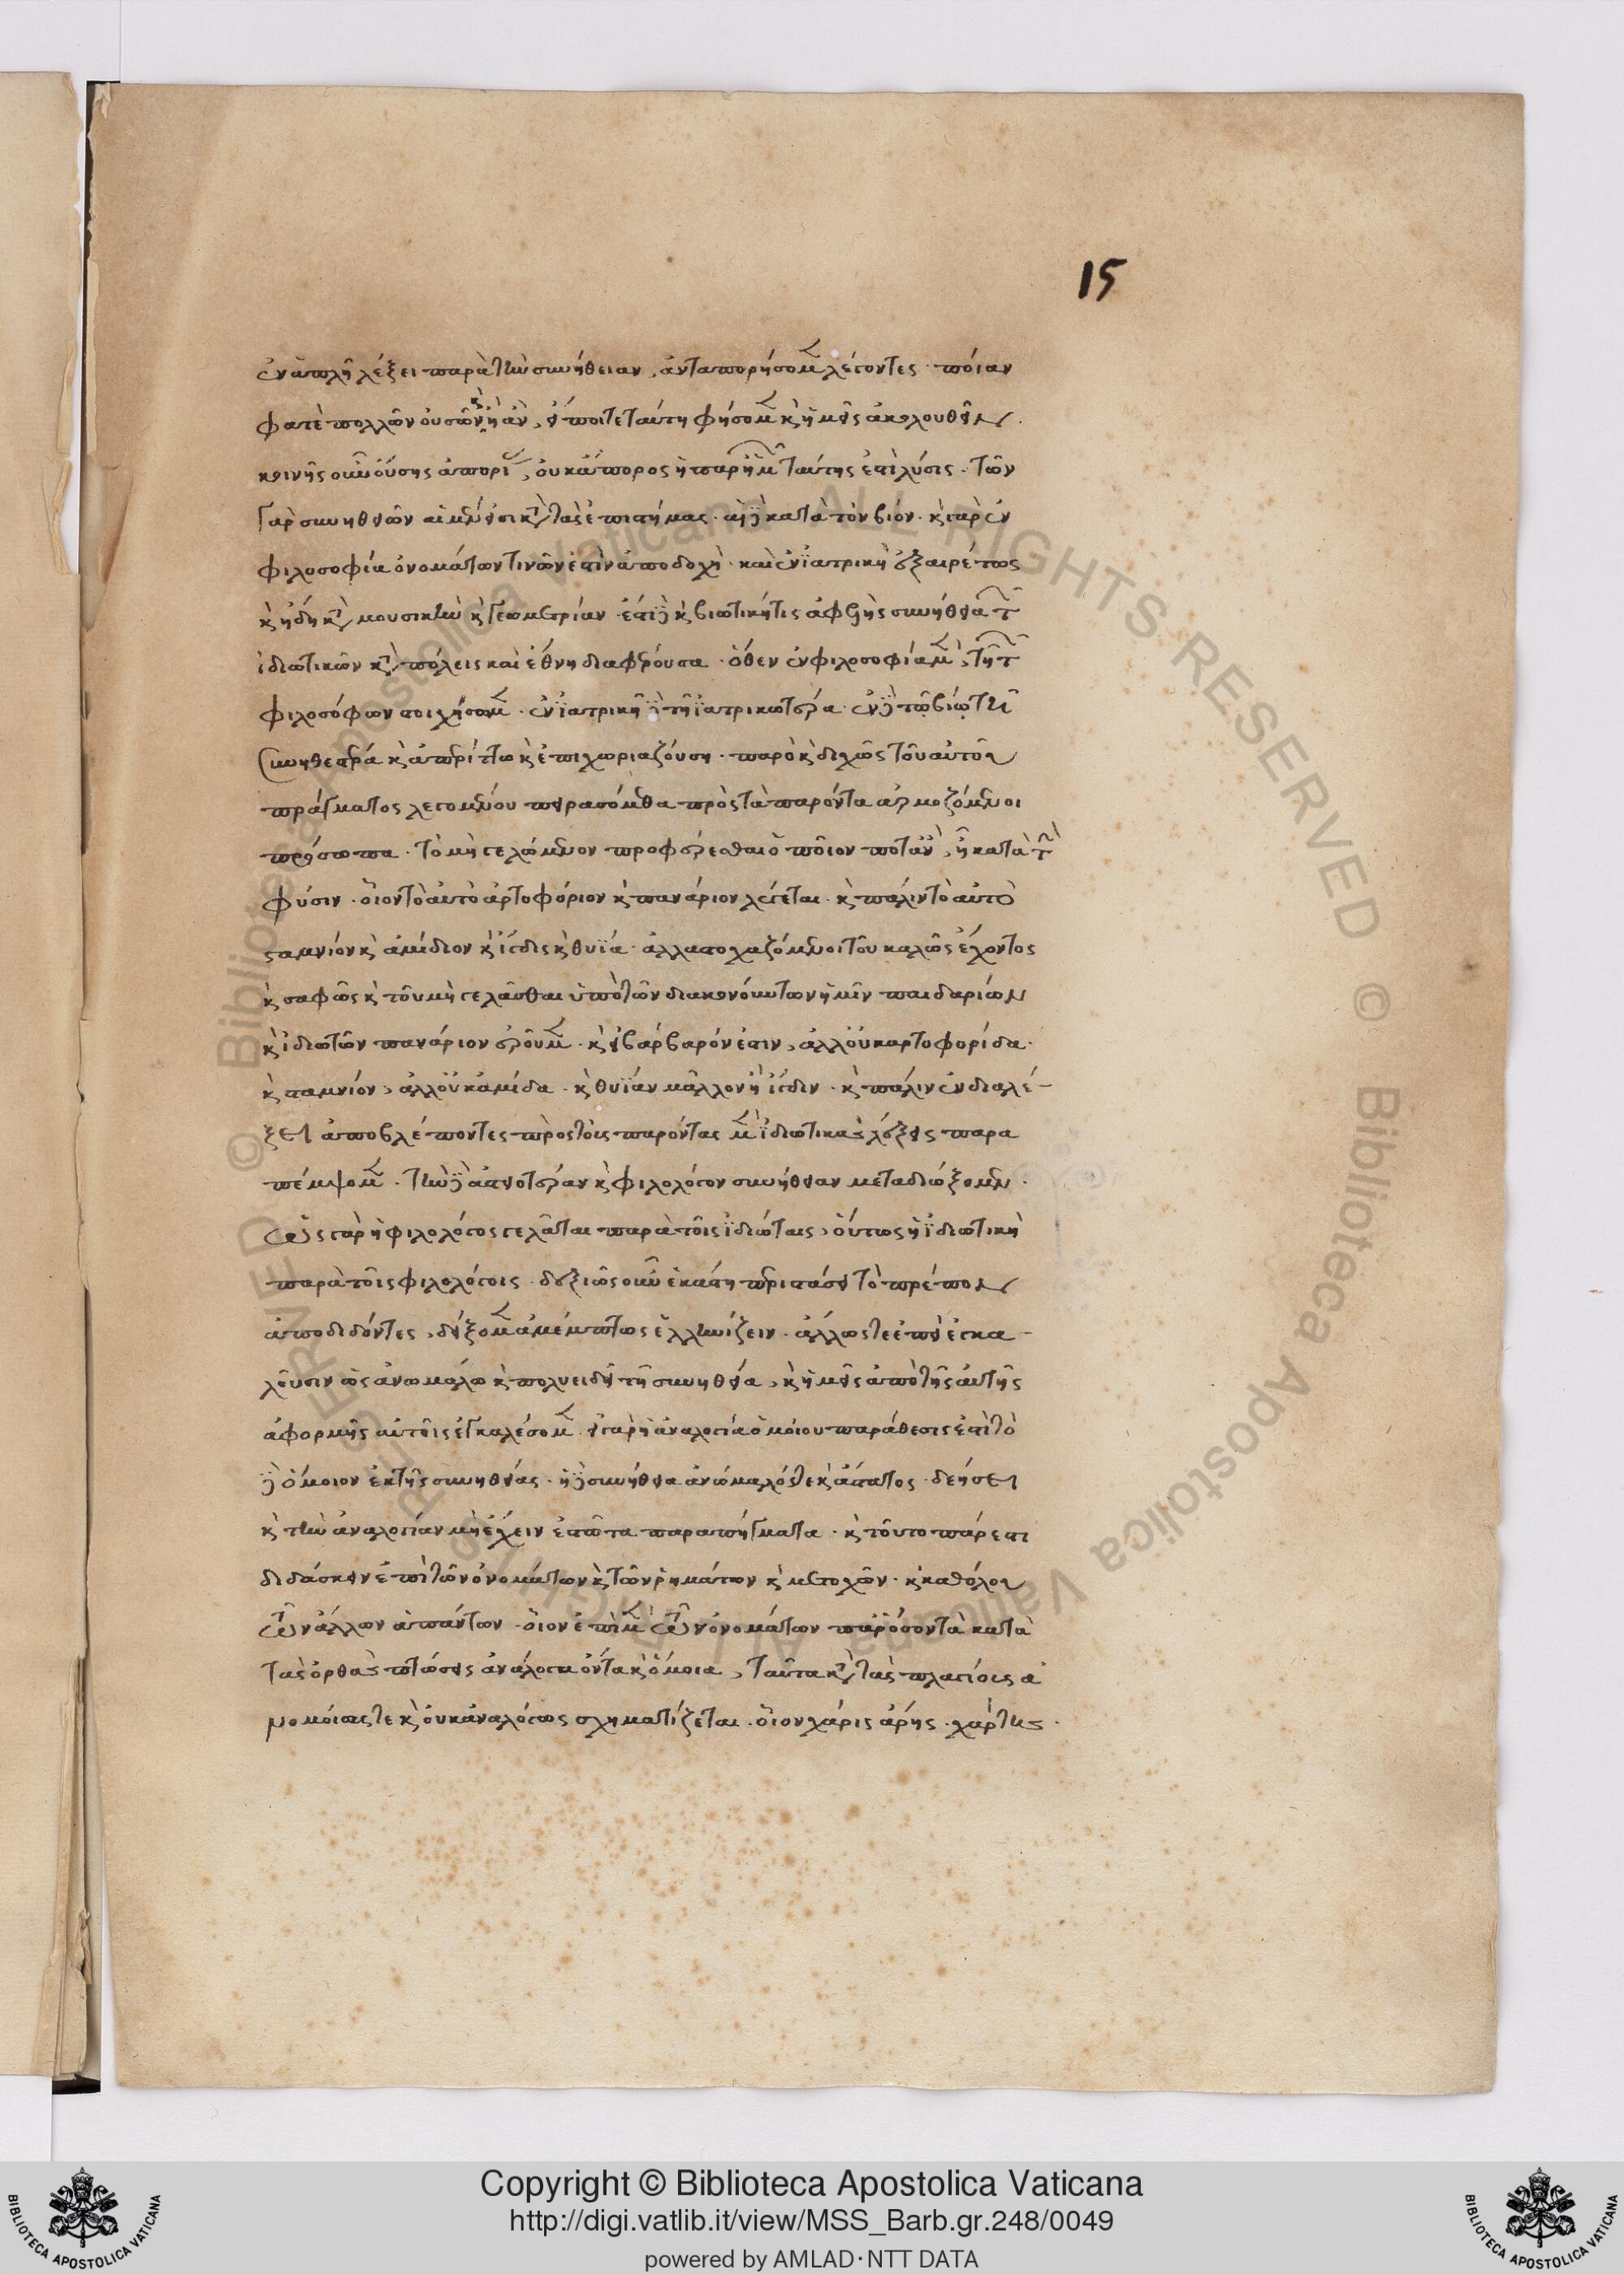 15
ἐν ἁπλῇ λέξει παρὰ τὴν συνήθειαν, ἀνταπορήσομεν λέγοντες· ποίαν
φατὲ πολλῶν οὐσῶν ἢ ἂν εἴποιτε ταύτῃ φήσομεν καὶ ἡμεῖς ἀκολουθεῖν.
κοινῆς οὖν οὔσης ἀπορίας, οὐκ ἄπορος ἡ παρ' ἡμῖν ταύτης ἐπίλυσις. τῶν
γὰρ συνηθειῶν αἱ μέν εἰσι κατὰ τὰς ἐπιστήμας. αἱ δὲ κατὰ τὸν βίον. καὶ γὰρ ἐν
φιλοσοφίᾳ ὀνομάτων τινῶν ἐστὶν ἀποδοχή. καὶ ἐν ἰατρικῇ ἐξαιρέτως
καὶ ἤδη κατὰ μουσικὴν καὶ γεωμετρίαν. ἔστι δὲ καὶ βιωτική τις ἀφελὴς συνήθεια τῶν
ἰδιωτικῶν κατὰ πόλεις καὶ ἔθνη διαφέρουσα. ὅθεν ἐν φιλοσοφίᾳ μὲν, τῇ τῶν
φιλοσόφων στοιχήσομεν. ἐν ἰατρικῇ δὲ τῇ ἰατρικωτέρᾳ. ἐν δὲ τῷ βίῳ τῇ
συνηθεστέρᾳ καὶ ἀπερίττῳ καὶ ἐπιχωριαζούσῃ. παρὸ καὶ διχῶς τοῦ αὐτοῦ
πράγματος λεγομένου πειρασόμεθα πρὸς τὰ παρόντα ἁρμοζόμενοι
πρόσωπα. τὸ μὴ γελώμενον προφέρεσθαι ὁποῖόν ποτ' ἂν ᾖ κατὰ τὴν
φύσιν. οἷον τὸ αὐτὸ ἀρτοφόριον καὶ πανάριον λέγεται. καὶ πάλιν τὸ αὐτὸ
σταμνίον καὶ ἀμίδιον καὶ ἴγδις καὶ θυΐα. ἀλλὰ στοχαζόμενοι τοῦ καλῶς ἔχοντος
καὶ σαφῶς καὶ τοῦ μὴ γελᾶσθαι ὑπὸ τῶν διακονούντων ἡμῖν παιδαρίων
καὶ ἰδιωτῶν πανάριον ἐροῦμεν. καὶ εἰ βάρβαρόν ἐστιν, ἀλλ' οὐκ ἀρτοφορίδα.
καὶ σταμνίον, ἀλλ' οὐκ ἀμίδα. καὶ θυΐαν μᾶλλον ἢ ἴγδιν. καὶ πάλιν ἐν διαλέ-
ξει ἀποβλέποντες πρὸς τοὺς παρόντας μὲν ἰδιωτικὰς λέξεις παρα
πέμψομεν. τὴν δὲ ἀστειοτέραν καὶ φιλολόγον συνήθειαν μεταδιώξομεν.
ὡς γὰρ ἡ φιλολόγος γελᾶται παρὰ τοῖς ἰδιώταις, οὕτως ἡ ἰδιωτικὴ
παρὰ τοῖς φιλολόγοις. δεξιῶς οὖν ἑκάστῃ περιστάσει τὸ πρέπον
ἀποδιδόντες, δόξομεν ἀμέμπτως ἑλληνίζειν. ἄλλως τε ἐπεὶ ἐγκα-
λοῦσιν ὡς ἀνωμάλῳ καὶ πολυειδῇ τῇ συνηθείᾳ, καὶ ἡμεῖς ἀπὸ τῆς αὐτῆς
ἀφορμῆς αὐτοῖς ἐγκαλέσομεν. εἰ γὰρ ἡ ἀναλογία ὁμοίου παράθεσις ἐστὶ τὸ
δὲ ὅμοιον ἐκ τῆς συνηθείας. ἡ δὲ συνήθεια ἀνώμαλός τε καὶ ἄστατος. δεήσει
καὶ τὴν ἀναλογίαν μὴ ἔχειν ἑστῶτα παραπήγματα. καὶ τοῦτο πάρεστι
διδάσκειν ἐπὶ τῶν ὀνομάτων καὶ τῶν ῥημάτων καὶ μετοχῶν. καὶ καθόλου
τῶν ἄλλων ἁπάντων. οἷον ἐπὶ μὲν τῶν ὀνομάτων παρόσον τὰ κατὰ
τὰς ὀρθὰς πτώσεις ἀνάλογα ὄντα καὶ ὅμοια, ταῦτα κατὰ τὰς πλαγίους ἀ
νομοίως τε καὶ οὐκ ἀναλόγως σχηματίζεται. οἷον χάρις ἄρης. χάρτης.
Copyright © Biblioteca Apostolica Vaticana
http://digi.vatlib.it/view/MSS_Barb.gr.248/0049
powered by AMLAD·NTT DATA